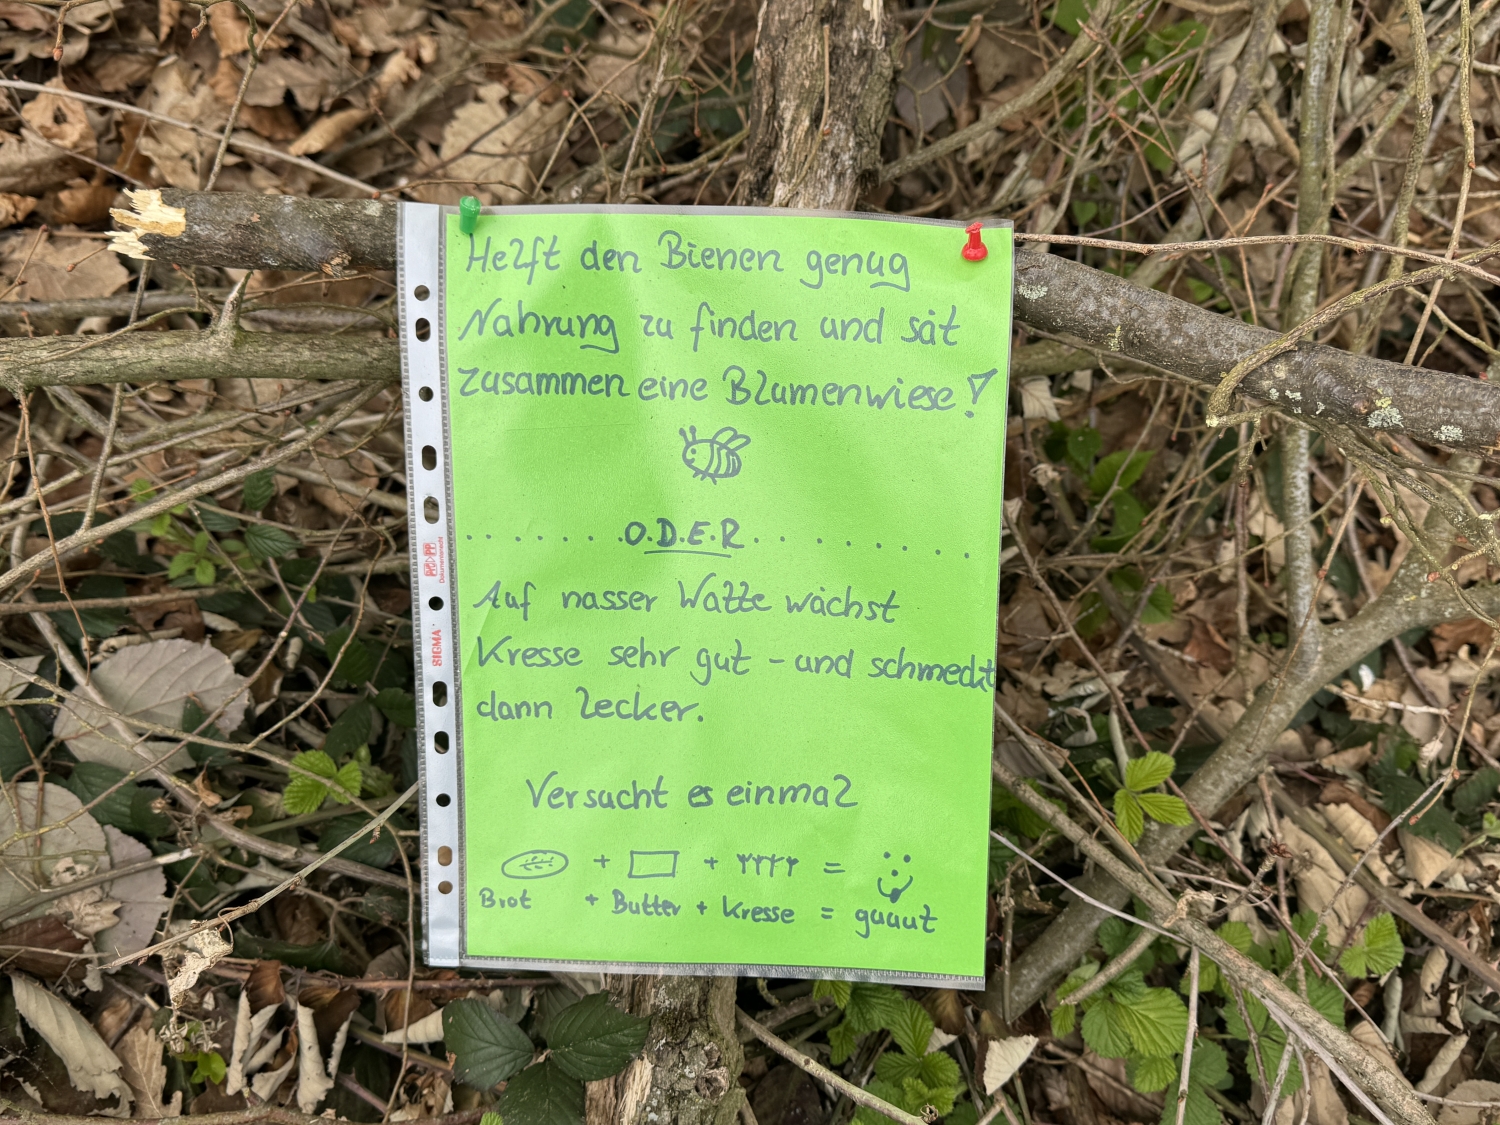 Helft den Bienen genug
Nahrung zu finden und sät
zusammen eine Blumenwiese!
. . . . . . . O.D.E.R . . . . . . . .
Auf nasser Watte wächst
Kresse sehr gut - und schmeckt
dann lecker.
Versucht es einmal
+ + =
Brot + Butter + Kresse = guuut
SIGMA
Dokumentenecht